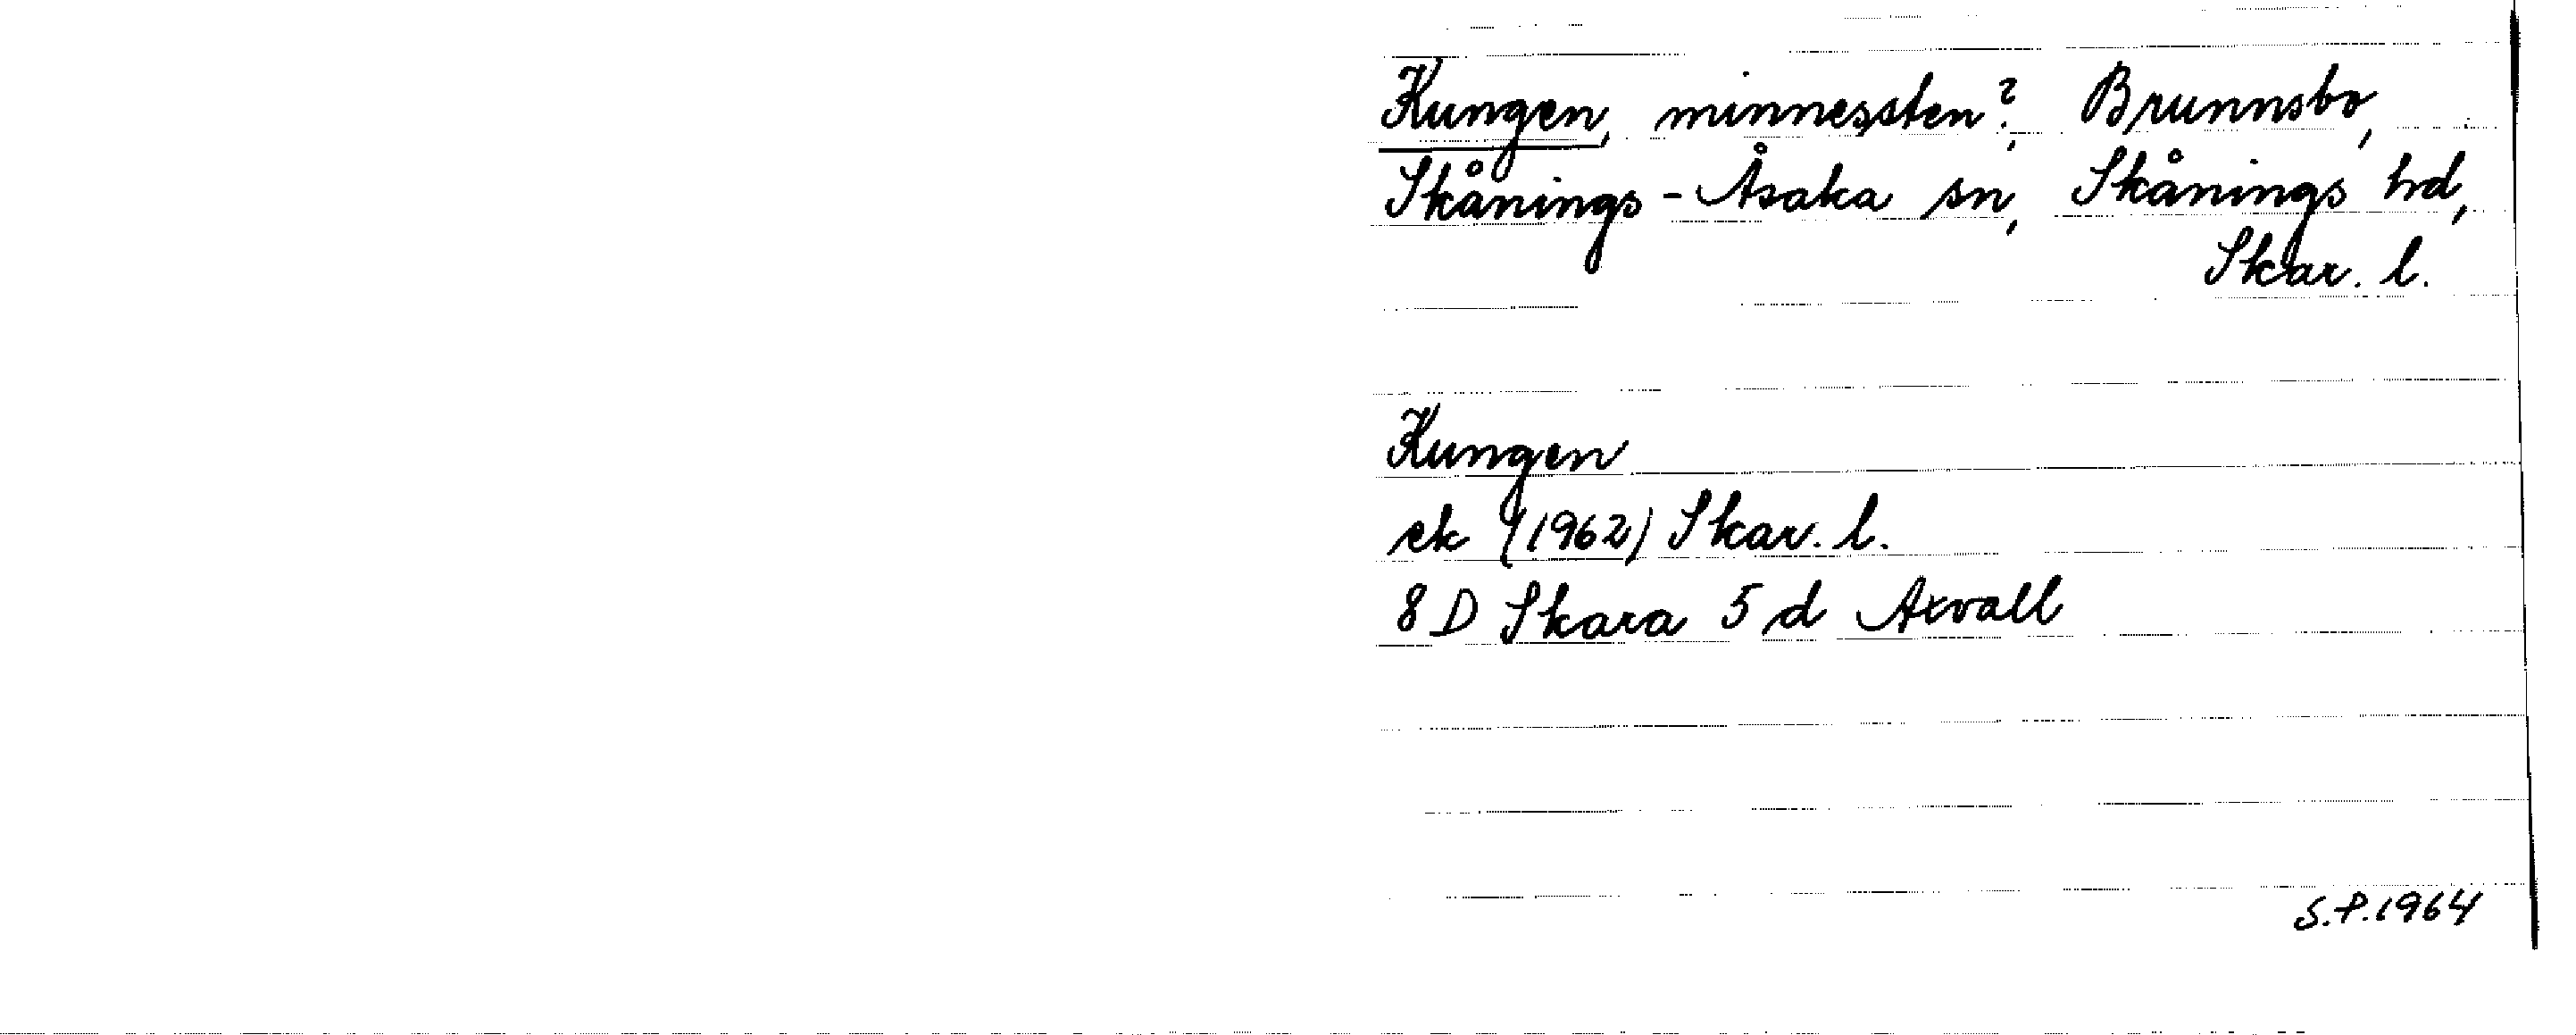 Kungen, minnessten?, Brunnsbo,
Skånings-Åsaka sn, Skånings hd,
Skar. l.
Kungen
ek (1962) Skar. l.
8 D Skara 5 d Axvall
S.P. 1964